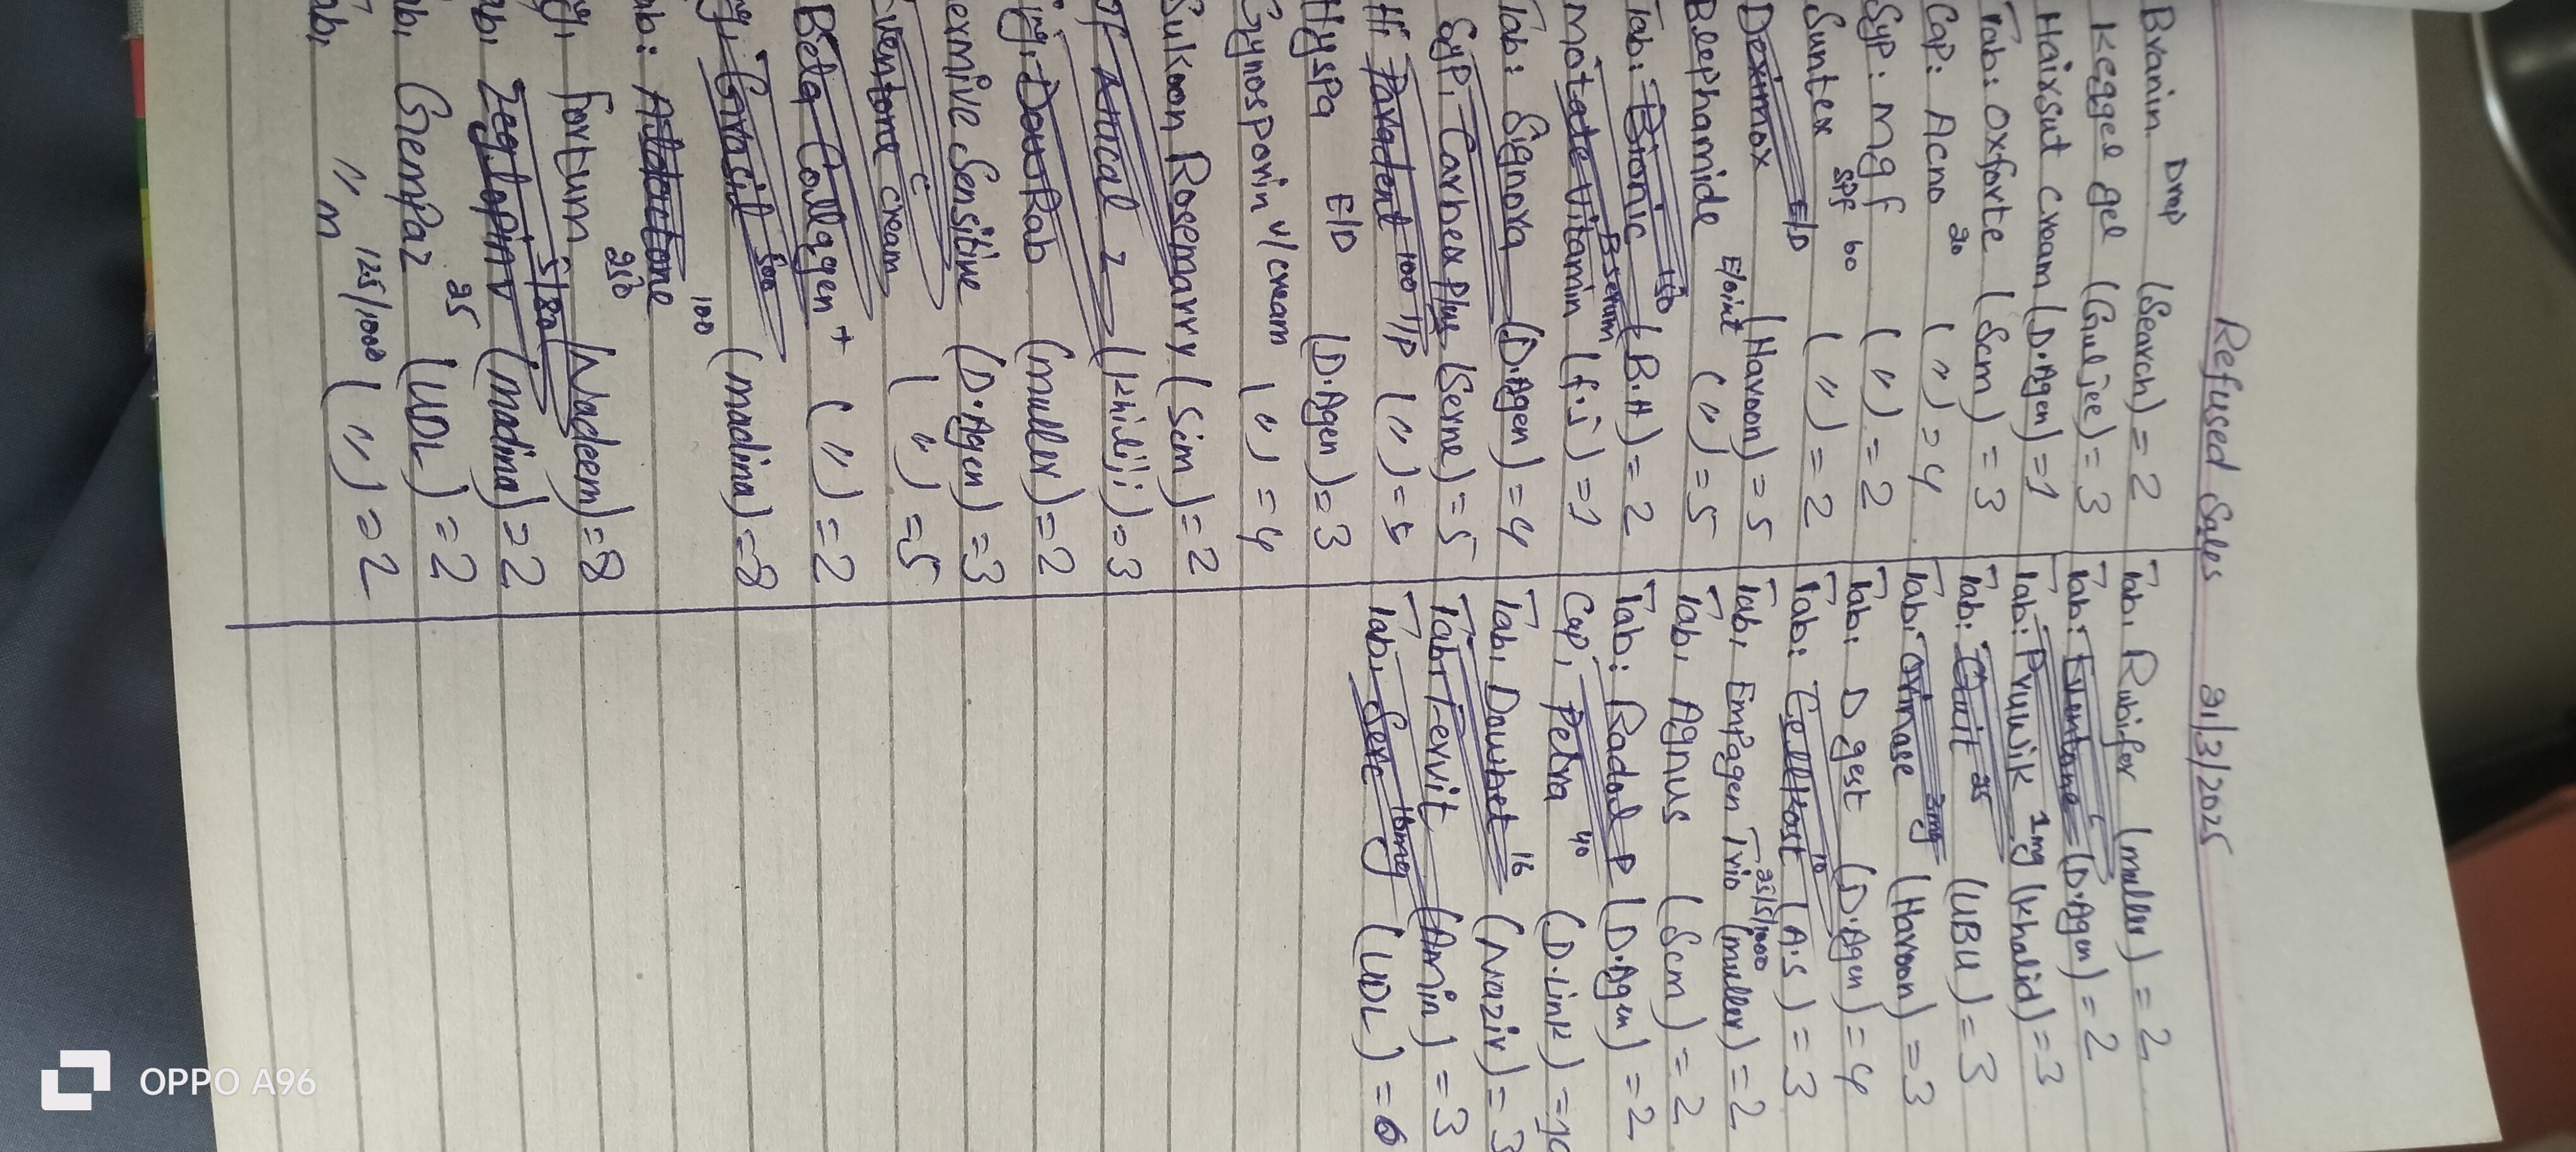 Refused Sales 31/3/2025
Brainin Dmp (Search) = 2
Keggel gel (Gul jee) = 3
Hairsut cream (D.Agen) = 1
Tab: Oxforte (Scm) = 3
Cap: Acno 20 ( " ) = 4
Syp: Mgf ( " ) = 2
Suntex SPF 60 ( " ) = 2
Deximox E/D (Haroon) = 5
Blephamide E/oint ( " ) = 5
Tab: Bionic 150 (B.H) = 2
Motade Vitamin B serum (f.j) = 1
Tab: Signova (D.Agen) = 4
Syp, Carbex Plus (Serne) = 5
Paradent 100 ( " ) = 5
Hyspa E/D (D.Agen) = 3
Gynosporin v/cream ( " ) = 4
Sukoon Rosemarry (Scm) = 2
(khiliji) = 3
(muller) = 2
Sensitive (D.Agen) = 3
Eventone C cream ( " ) = 5
Beta Collagen + ( " ) = 2
500 (madina) = 8
Aldactone 100
fortum 250 (Nadeem) = 8
5/80 (madina) = 2
Gempaz 25 (UDL) = 2
" m 12.5/1000 ( " ) = 2
Tab, Rubifor (muller) = 2
Tab: Eventone C (D.Agen) = 2
Tab: Pruwik 1mg (Khalid) = 3
Tab: 25 (UBU) = 3
Tab: Orinase 3mg (Haroon) = 3
Tab: D gest (D.Agen) = 4
Tab: 10 (A.S) = 3
Tab, Empagen Trio 25/5/1000 (muller) = 2
Tab, Agnus (Scm) = 2
Tab: Radol P (D.Agen) = 2
Cap, Petra 40 (D.Link) = 10
Tab, Doubet 16 (Nazir) = 3
Tab, Fervit (Amin) = 3
Tab, 16mg (UDL) = 6
OPPO A96